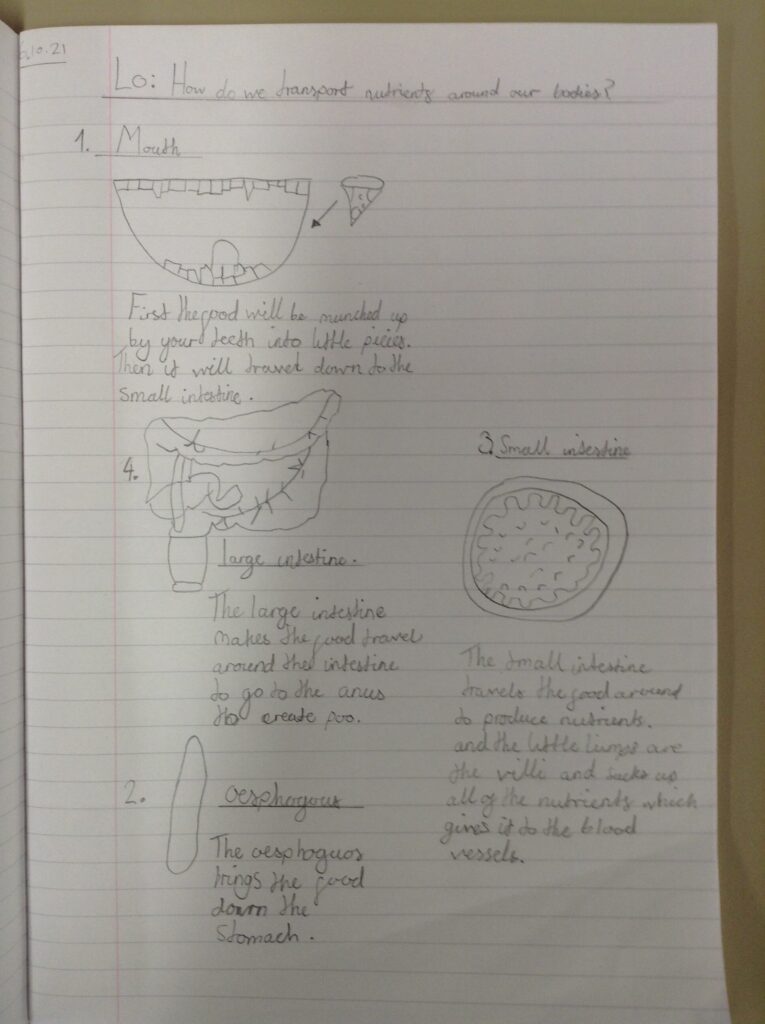 .10.21
Lo: How do we transport nutrients around our bodies?
1. Mouth
First the food will be munched up
by your teeth into little piecies.
Then it will travel down to the
small intestine.
4.
large intestine.
The large intestine
makes the food travel
around the intestine
to go to the anus
to create poo.
2.
oesphogous
The oesphoguos
brings the food
down the
Stomach.
3. Small intestine
The small intestine
travels the food around
to produce nutrients.
and the little lumps are
the villi and sucks up
all of the nutrients which
gives it to the blood
vessels.